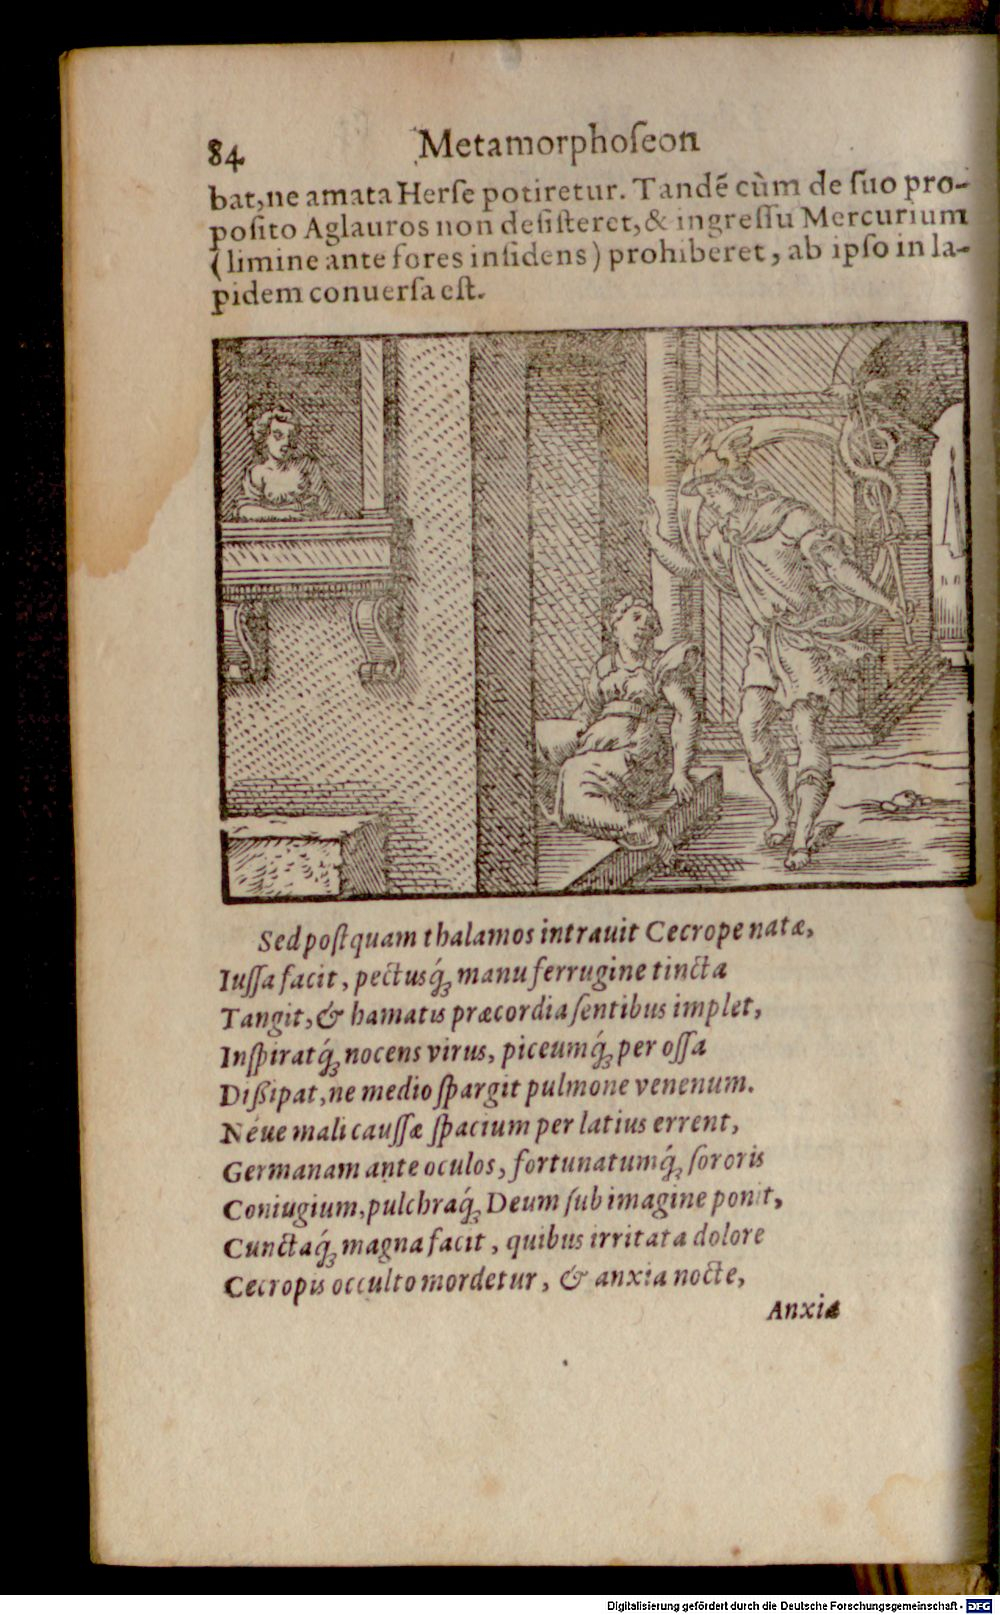 84 Metamorphoſeon
bat, ne amata Herſe potiretur. Tandẽ cùm de ſuo pro-
poſito Aglauros non deſiſteret, & ingreſſu Mercurium
(limine ante fores inſidens) prohiberet, ab ipſo in la-
pidem conuerſa eſt.
Sed poſtquam thalamos intrauit Cecrope natæ,
Iuſſa facit, pectusq́ꝫ manu ferrugine tincta
Tangit, & hamatis præcordia ſentibus implet,
Inſpiratq́ꝫ nocens virus, piceumq́ꝫ per oſſa
Dißipat, ne medio ſpargit pulmone venenum.
Néue mali cauſſæ ſpacium per latius errent,
Germanam ante oculos, fortunatumq́ꝫ ſororis
Coniugium, pulchraq́ꝫ Deum ſub imagine ponit,
Cunctaq́ꝫ magna facit, quibus irritata dolore
Cecropis occulto mordetur, & anxia nocte,
Anxia
Digitalisierung gefördert durch die Deutsche Forschungsgemeinschaft - DFG